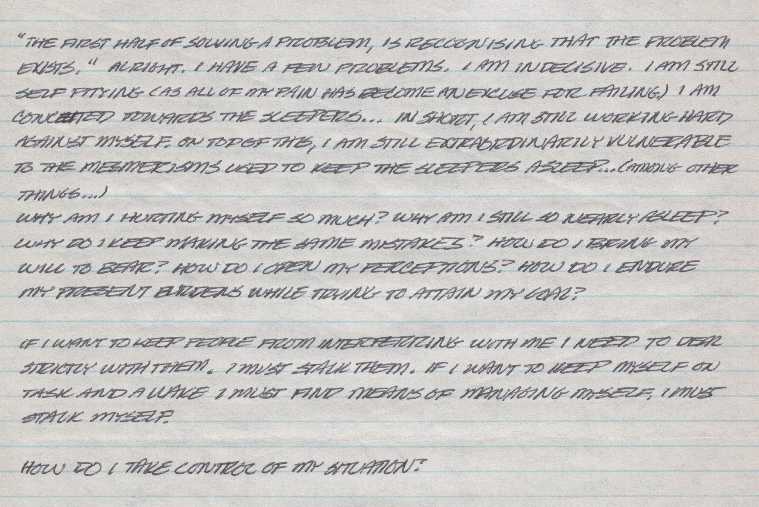 "THE FIRST HALF OF SOLVING A PROBLEM, IS RECOGNISING THAT THE PROBLEM
EXISTS." ALRIGHT. I HAVE A FEW PROBLEMS. I AM INDECISIVE. I AM STILL
SELF PITYING (AS ALL OF MY PAIN HAS BECOME AN EXCUSE FOR FAILING) I AM
CONCEITED TOWARDS THE SLEEPERS... IN SHORT, I AM STILL WORKING HARD
AGAINST MYSELF. ON TOP OF THIS, I AM STILL EXTRAORDINARILY VULNERABLE
TO THE MESMERISMS USED TO KEEP THE SLEEPERS ASLEEP... (AMONG OTHER
THINGS...)
WHY AM I HURTING MYSELF SO MUCH? WHY AM I STILL SO NEARLY ASLEEP?
WHY DO I KEEP MAKING THE SAME MISTAKES? HOW DO I BRING MY
WILL TO BEAR? HOW DO I OPEN MY PERCEPTIONS? HOW DO I ENDURE
MY PRESENT BURDENS WHILE TRYING TO ATTAIN MY GOAL?
IF I WANT TO KEEP PEOPLE FROM INTERFERRING WITH ME I NEED TO DEAL
STRICTLY WITH THEM. I MUST STALK THEM. IF I WANT TO KEEP MYSELF ON
TASK AND AWAKE I MUST FIND MEANS OF MANAGING MYSELF. I MUST
STALK MYSELF.
HOW DO I TAKE CONTROL OF MY SITUATION?